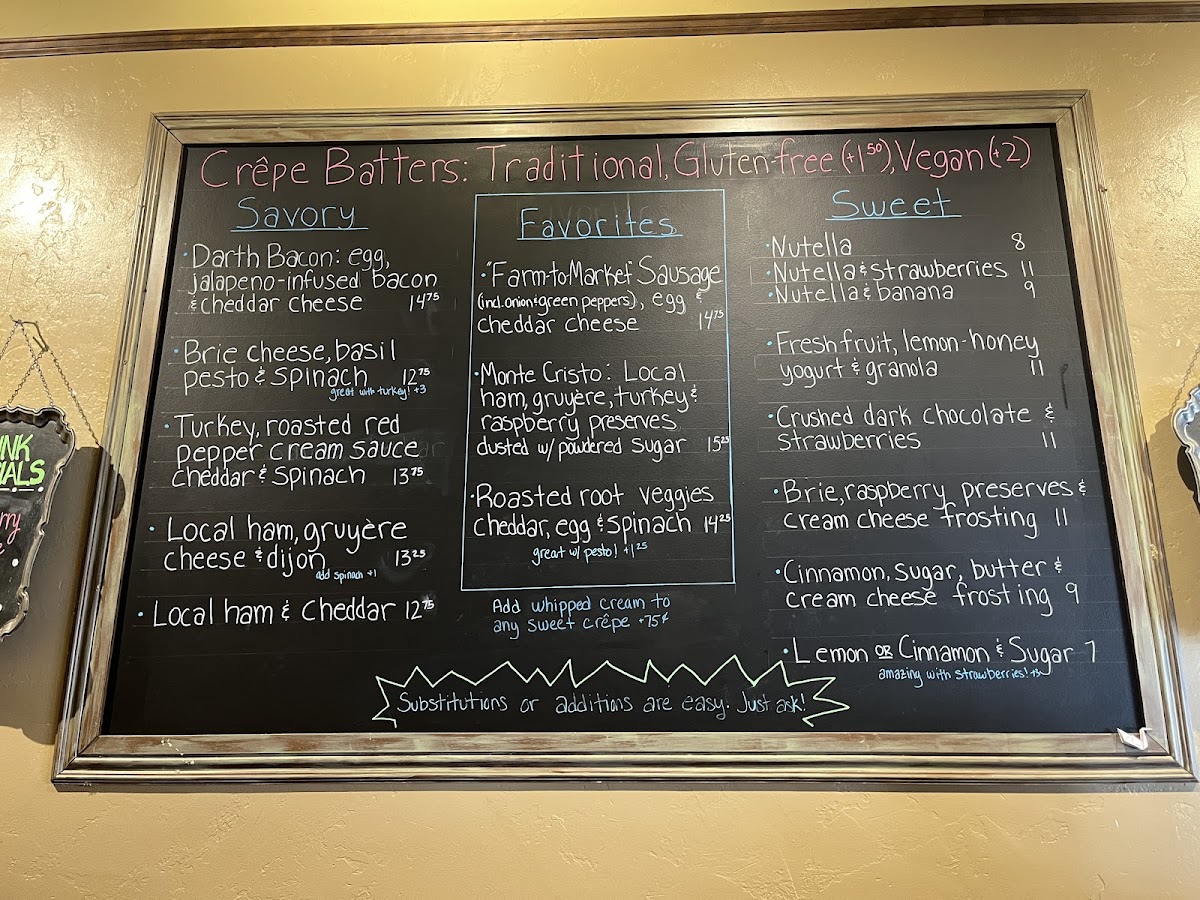 Crêpe Batters: Traditional, Gluten-free (+1⁵⁰), Vegan (+2)
Savory
· Darth Bacon: egg,
jalapeno-infused bacon
& cheddar cheese 14⁷⁵
· Brie cheese, basil
pesto & spinach 12⁷⁵
great with turkey! +3
· Turkey, roasted red
pepper cream sauce
cheddar & spinach 13⁷⁵
· Local ham, gruyère
cheese & dijon 13²⁵
add spinach +1
· Local ham & cheddar 12⁷⁵
Favorites
· "Farm-to-Market" Sausage
(incl. onion & green peppers), egg &
cheddar cheese 14⁷⁵
· Monte Cristo: Local
ham, gruyère, turkey &
raspberry preserves
dusted w/ powdered sugar 15²⁵
· Roasted root veggies
cheddar, egg & spinach 14²⁵
great w/ pesto! +1²⁵
Add whipped cream to
any sweet crêpe +75¢
Sweet
· Nutella 8
· Nutella & strawberries 11
· Nutella & banana 9
· Fresh fruit, lemon-honey
yogurt & granola 11
· Crushed dark chocolate &
strawberries 11
· Brie, raspberry preserves &
cream cheese frosting 11
· Cinnamon, sugar, butter &
cream cheese frosting 9
· Lemon OR Cinnamon & Sugar 7
amazing with strawberries! +3
Substitutions or additions are easy. Just ask!